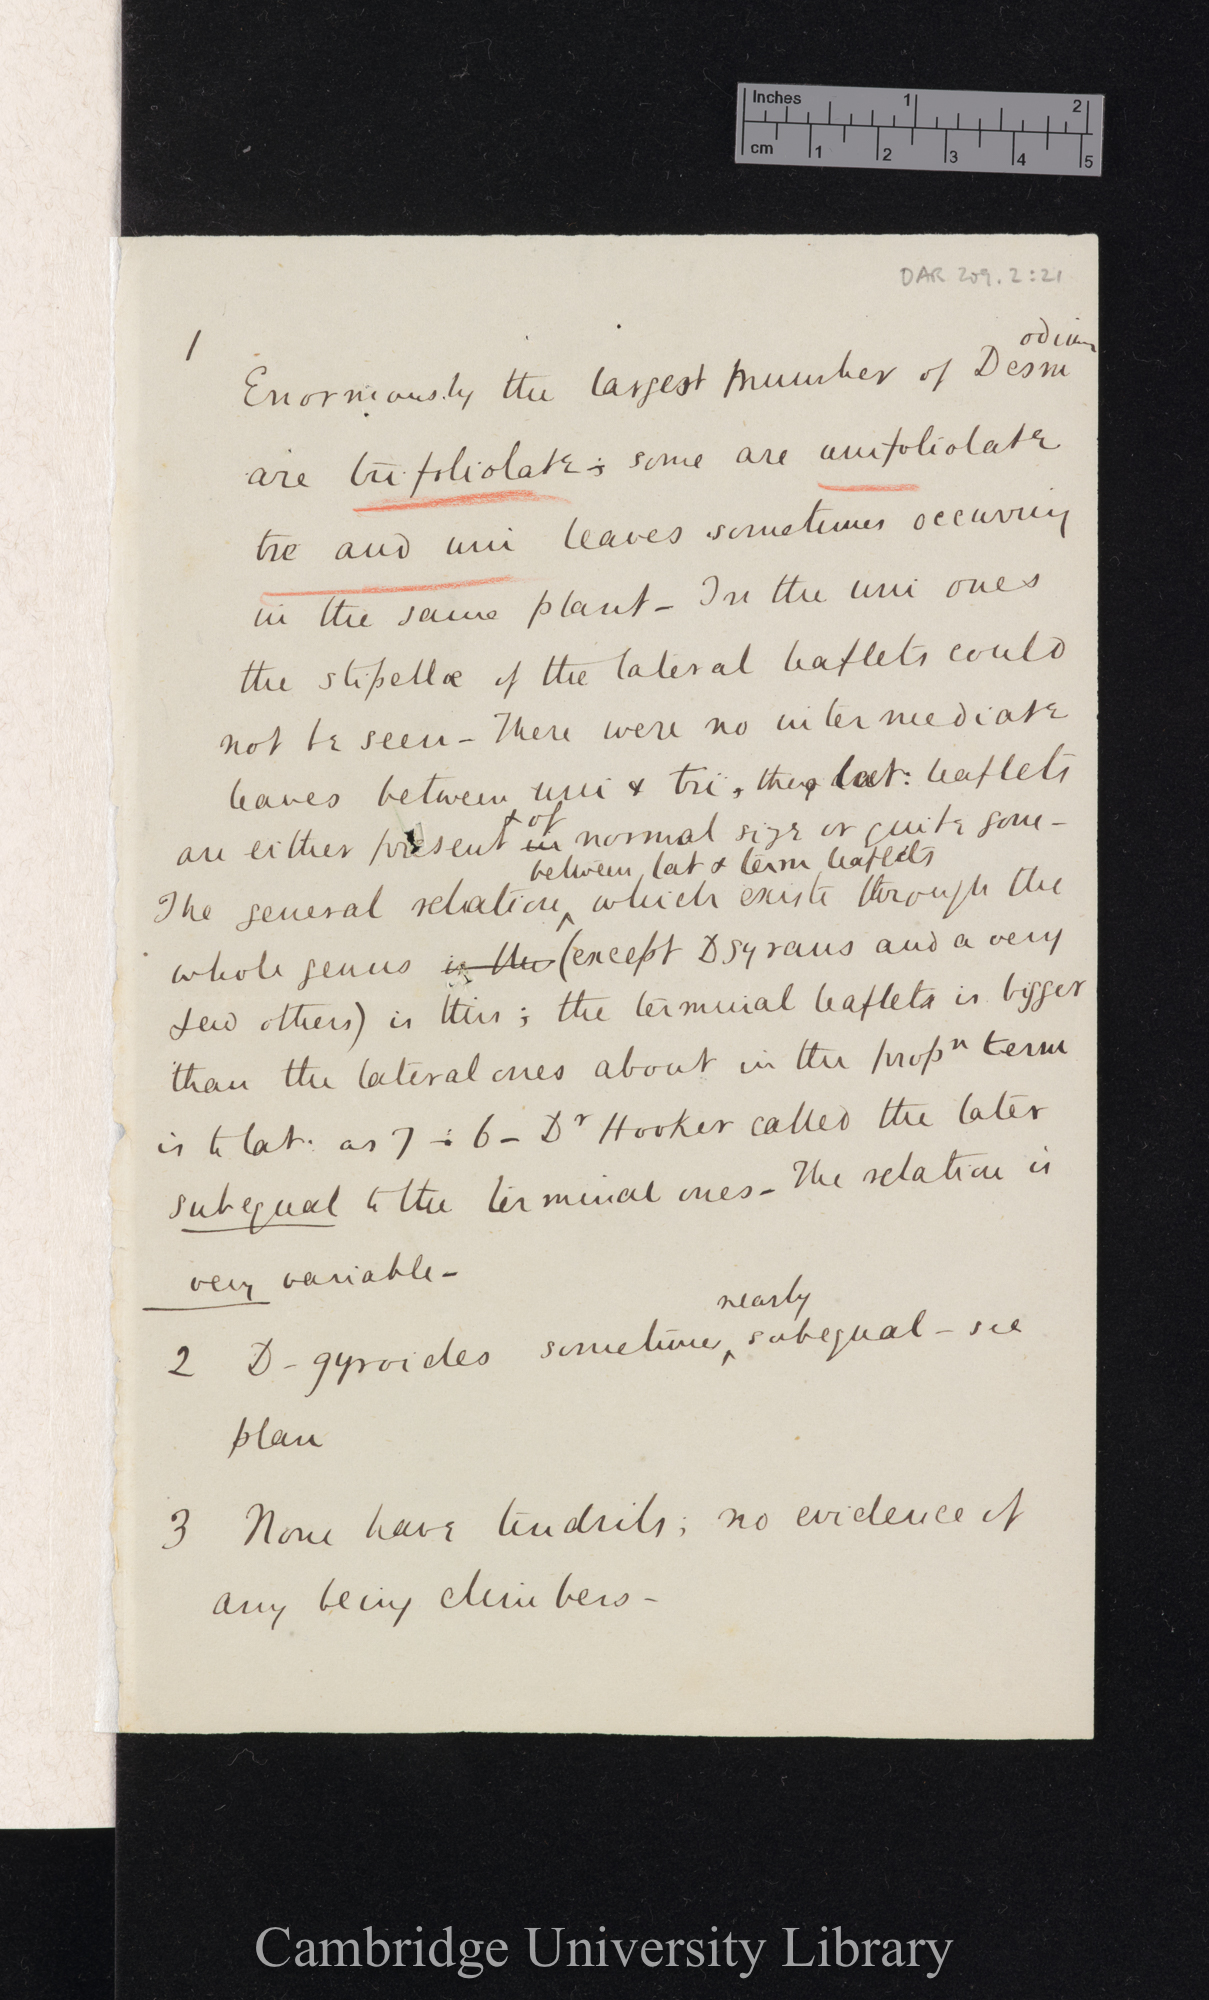 Inches 1 2
cm 1 2 3 4 5
DAR 209.2:21
1
odium
Enormously the largest number of Desm
are trifoliolate; some are unifoliolate
tre and uni leaves sometimes occurring
in the same plant – In the uni ones
the stipellæ of the lateral leaflets could
not be seen – There were no intermediate
leaves between uni & tri, they lat: leaflets
& of
are either present in normal size or quite gone –
between lat & term leaflets
The general relation ‸ which exists through the
whole genus is this (except D gyrans and a very
few others) is this; the terminal leaflets is bigger
than the lateral ones about in the propⁿ term
is to lat. as 7 ÷ 6 – Dʳ Hooker called the later
subequal to the terminal ones – The relation is
very variable –
nearly
2 D – gyroides sometimes ‸ subequal – see
plan
3 None have tendrils; no evidence of
any being climbers –
Cambridge University Library